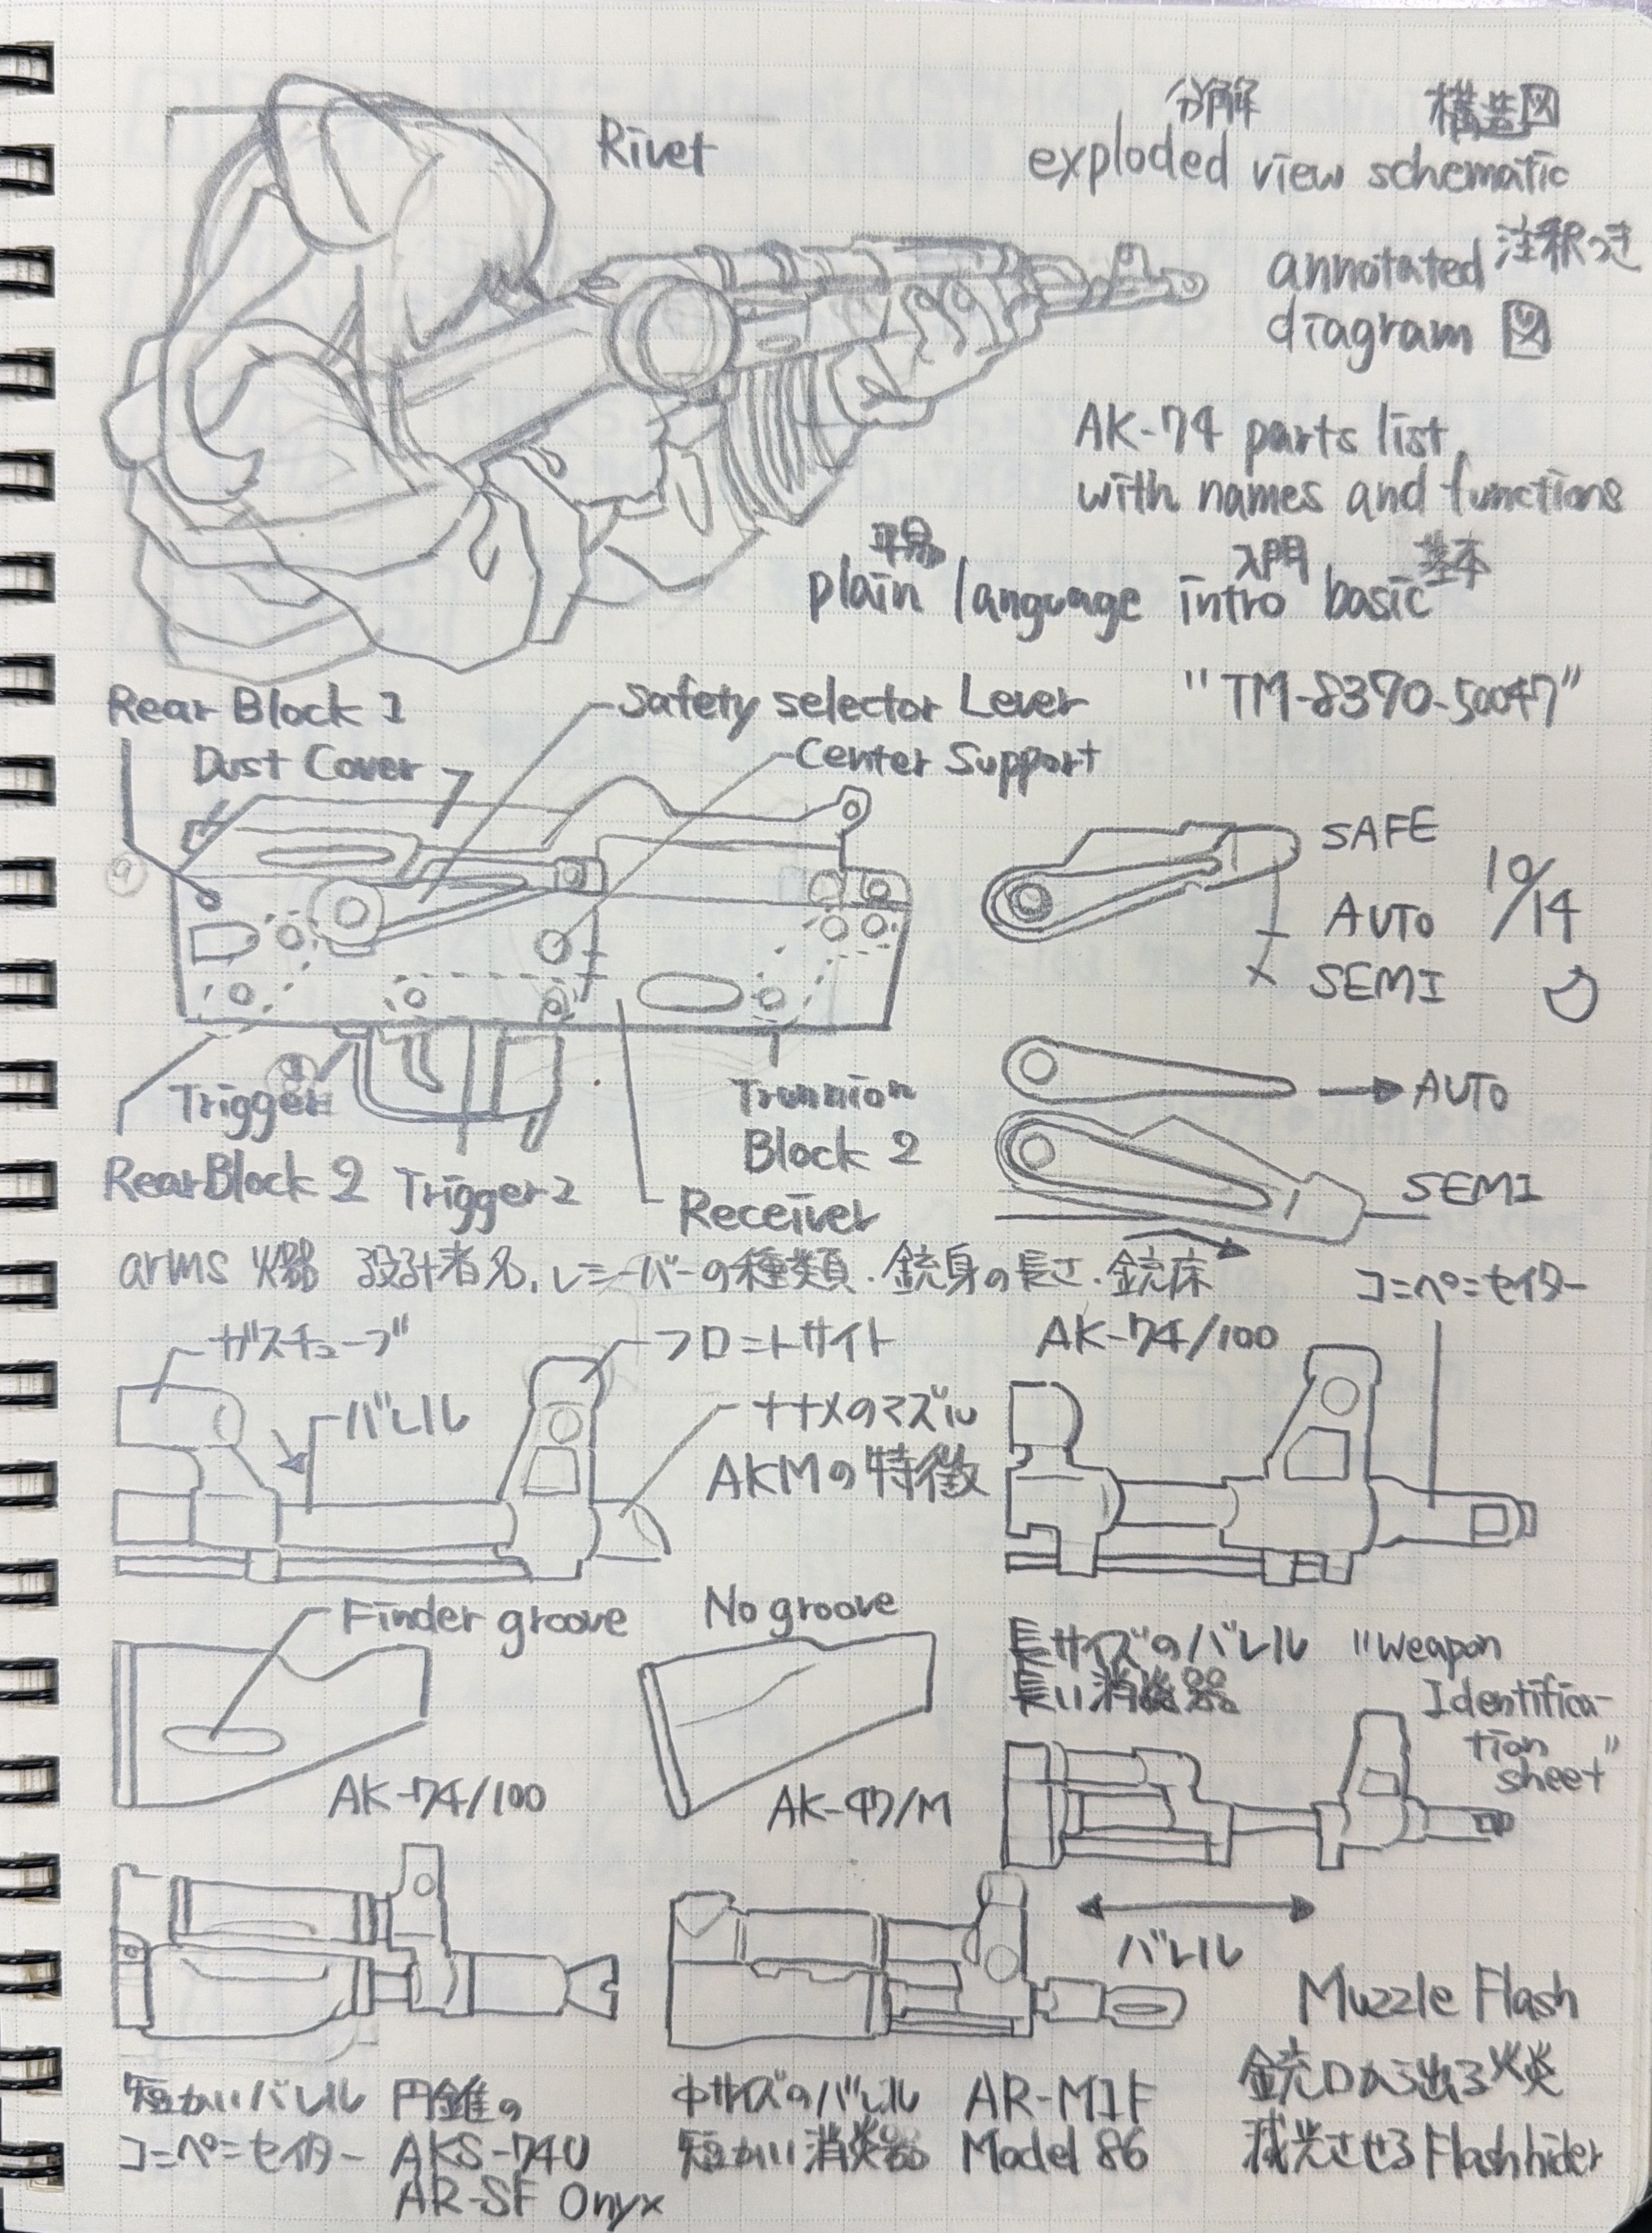 Rivet
分解 構造図
exploded view schematic
annotated 注釈つき
diagram 図
AK-74 parts list
with names and functions
平易 入門 基本
plain language intro basic
"TM-8370-50047"
Rear Block 1
Safety selector Lever
Dust Cover
Center Support
SAFE
AUTO
SEMI
10/14
AUTO
SEMI
Trigger 1
Trunnion
Block 2
Rear Block 2
Trigger 2
Receiver
arms 火器 設計者名、レシーバーの種類・銃身の長さ・銃床
コンペンセイター
ガスチューブ
フロントサイト
AK-74/100
バレル
ナナメのマズル
AKMの特徴
Finder groove
No groove
AK-74/100
AK-47/M
長サイズのバレル
長い消炎器
"Weapon
Identifica-
tion
sheet"
バレル
Muzzle Flash
銃口から出る火炎
減光させる Flash hider
短かいバレル 円錐の
コンペンセイター AKS-74U
AR-SF Onyx
中サイズのバレル AR-M1F
短かい消炎器 Model 86